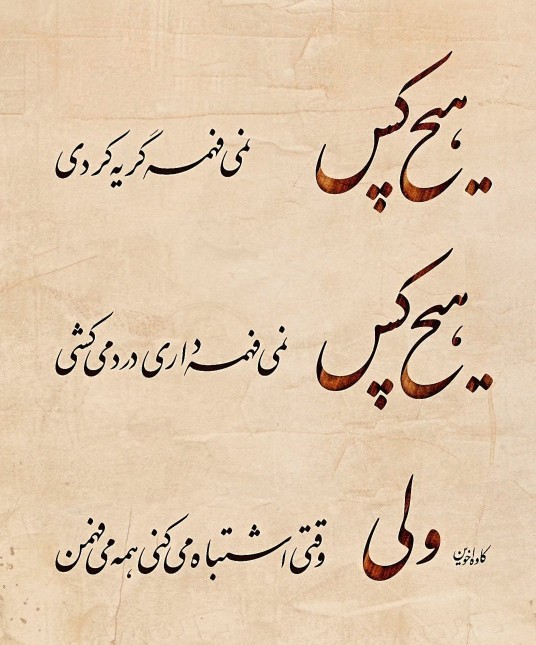 هیچ کس نمی فهمه گریه کردی
هیچ کس نمی فهمه داری درد می کشی
ولی وقتی اشتباه می کنی همه می فهمن
کاوه اخوین